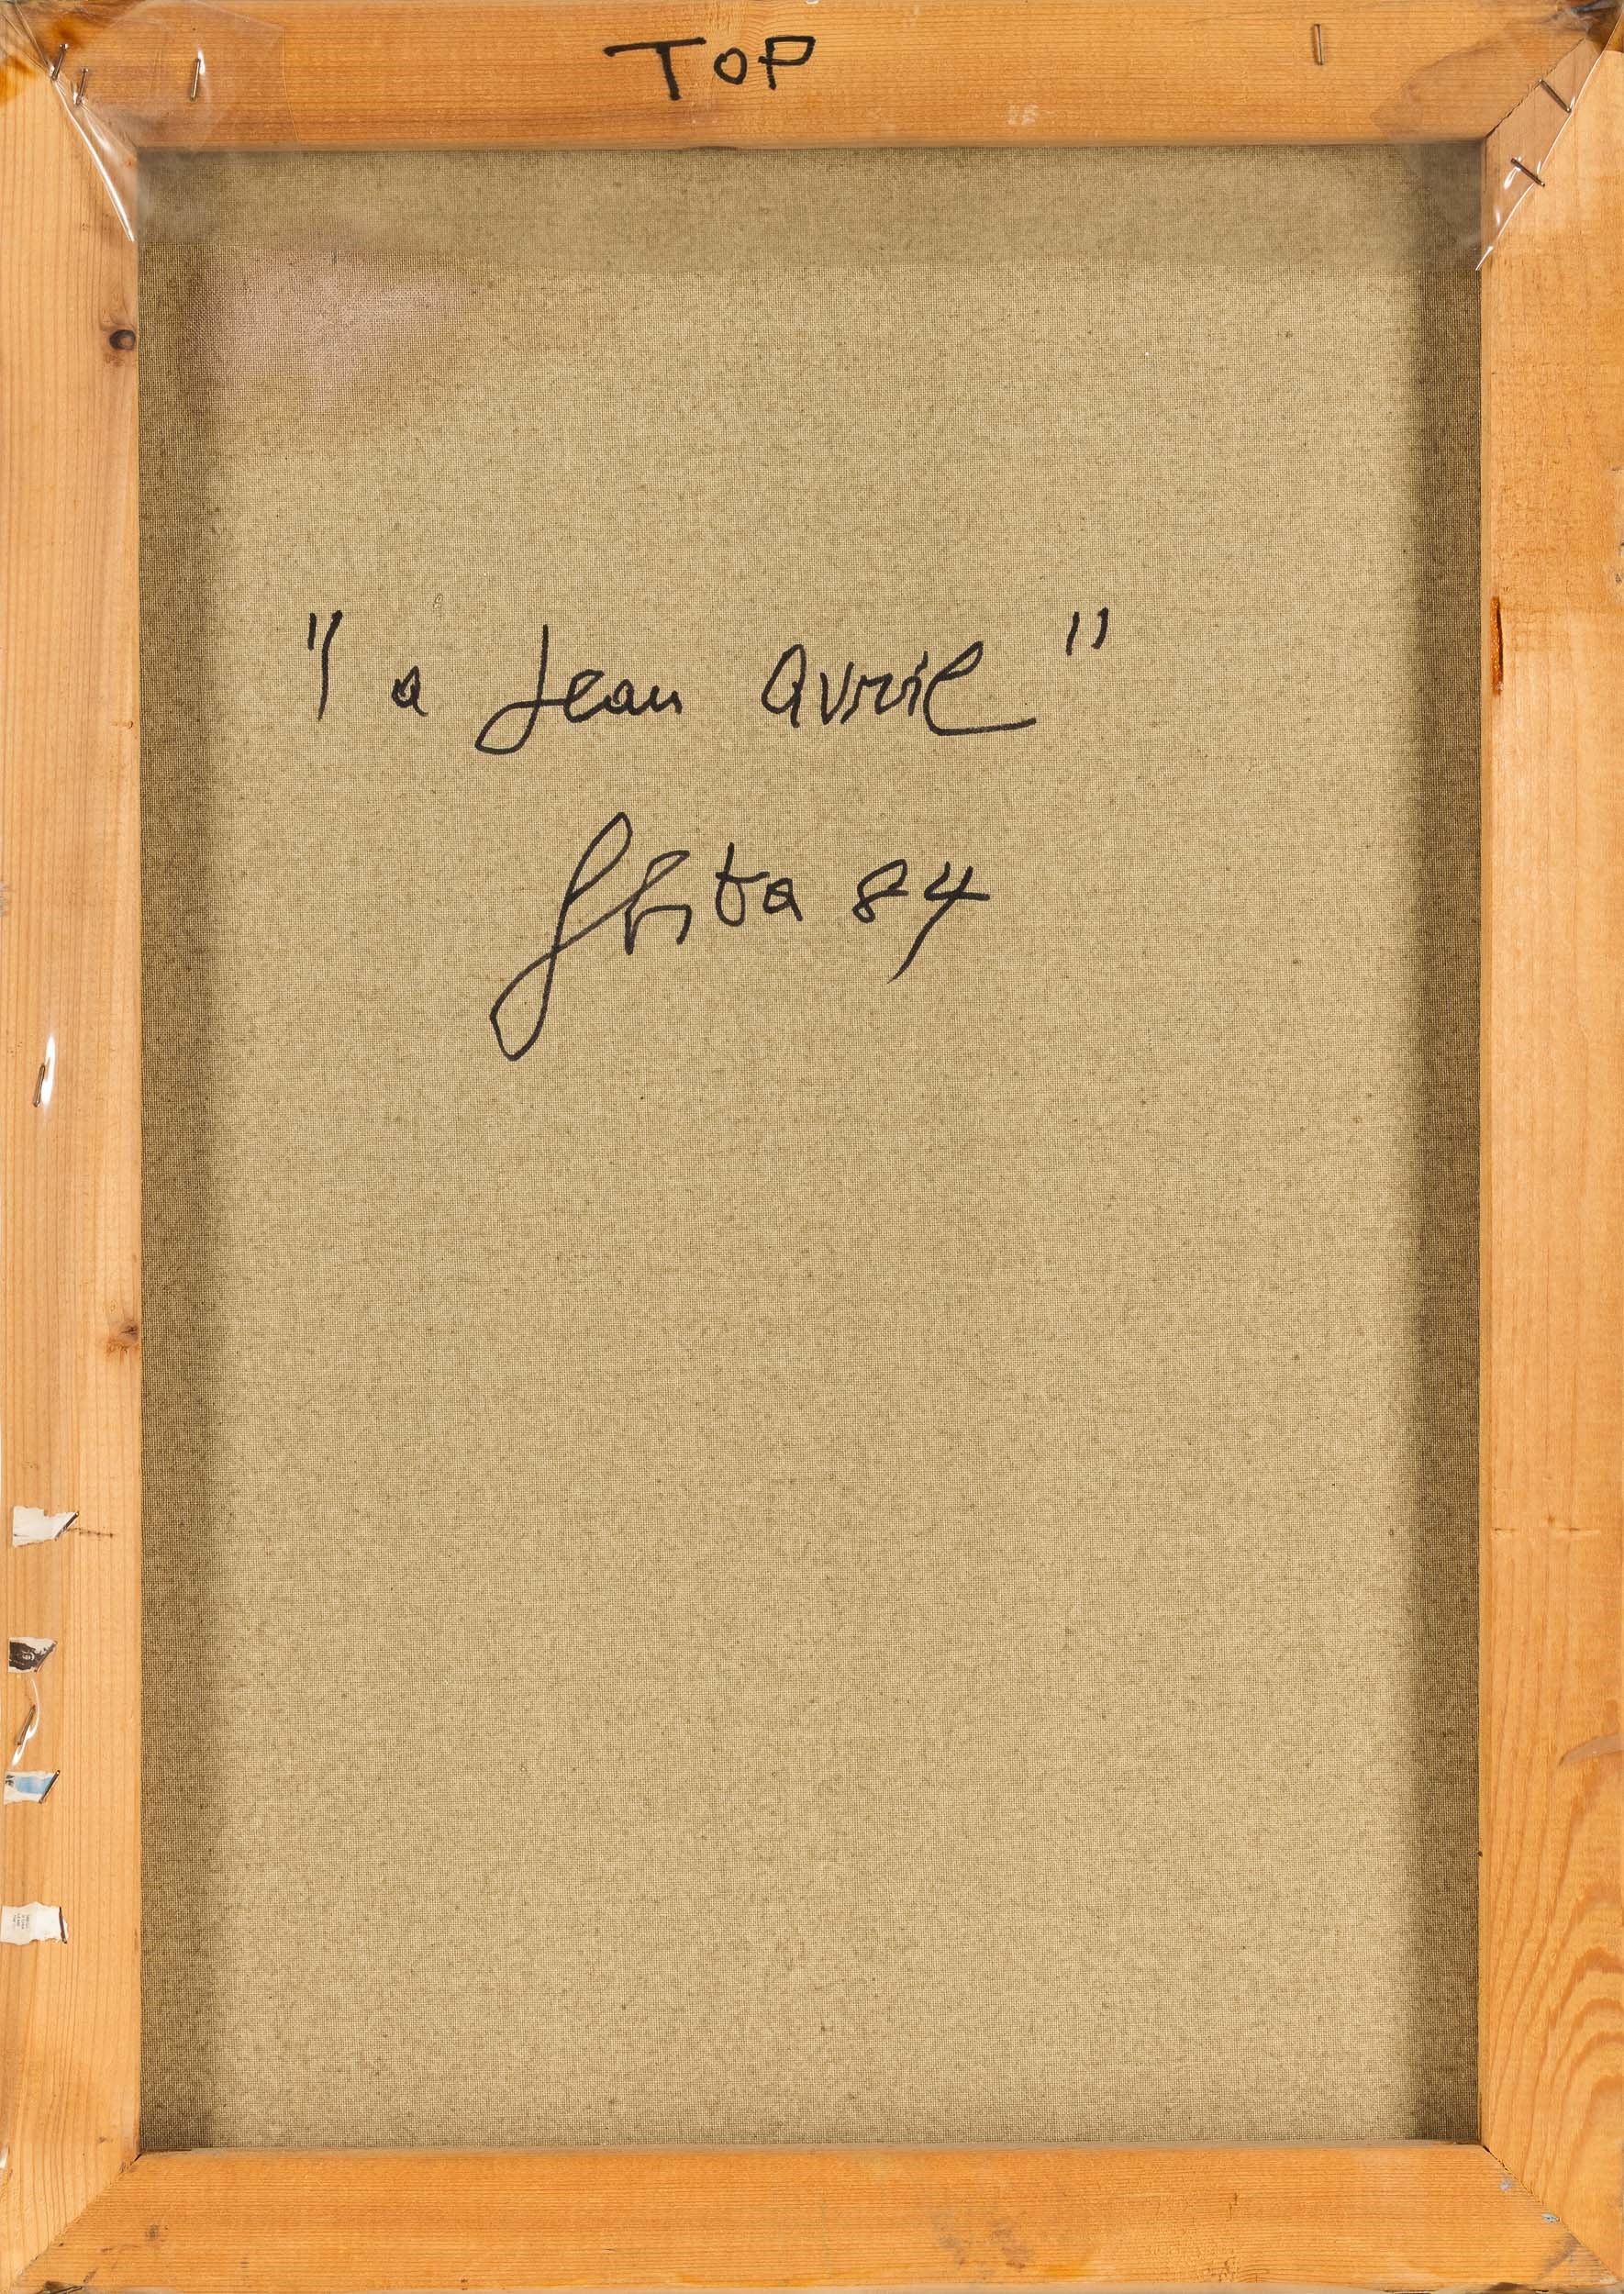 TOP
" a Jean Avril "
84